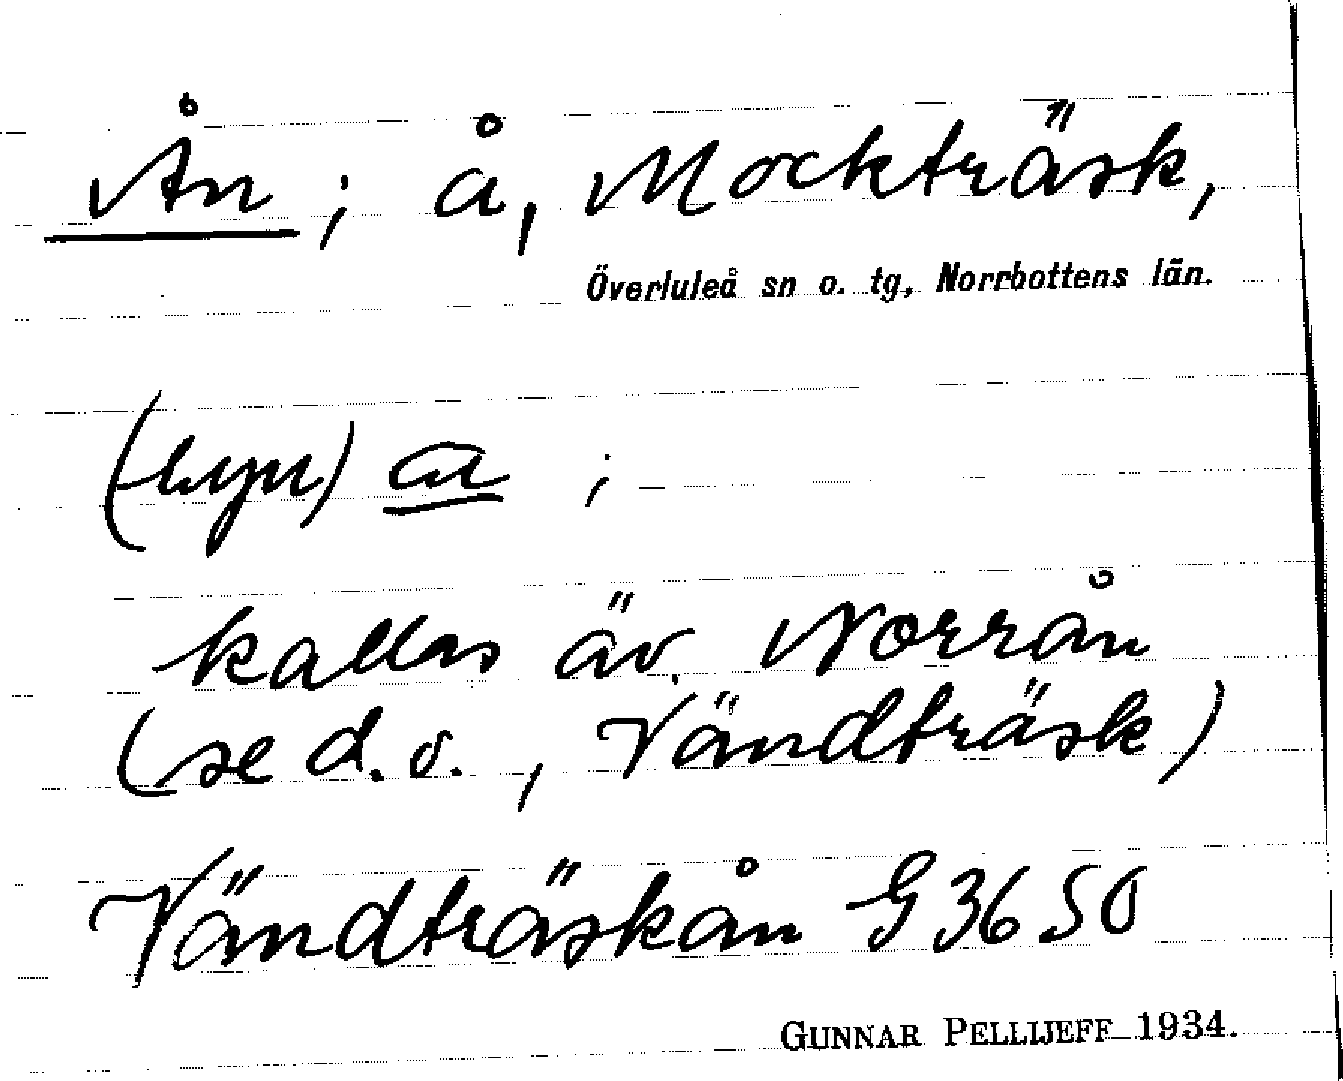 Ån ; å, Mockträsk,
Överluleå sn o. tg, Norrbottens län.
a ;
kallas äv. Norrån
(se d.o., Vändträsk)
Vändträskån G 3650
GUNNAR PELLIJEFF 1934.